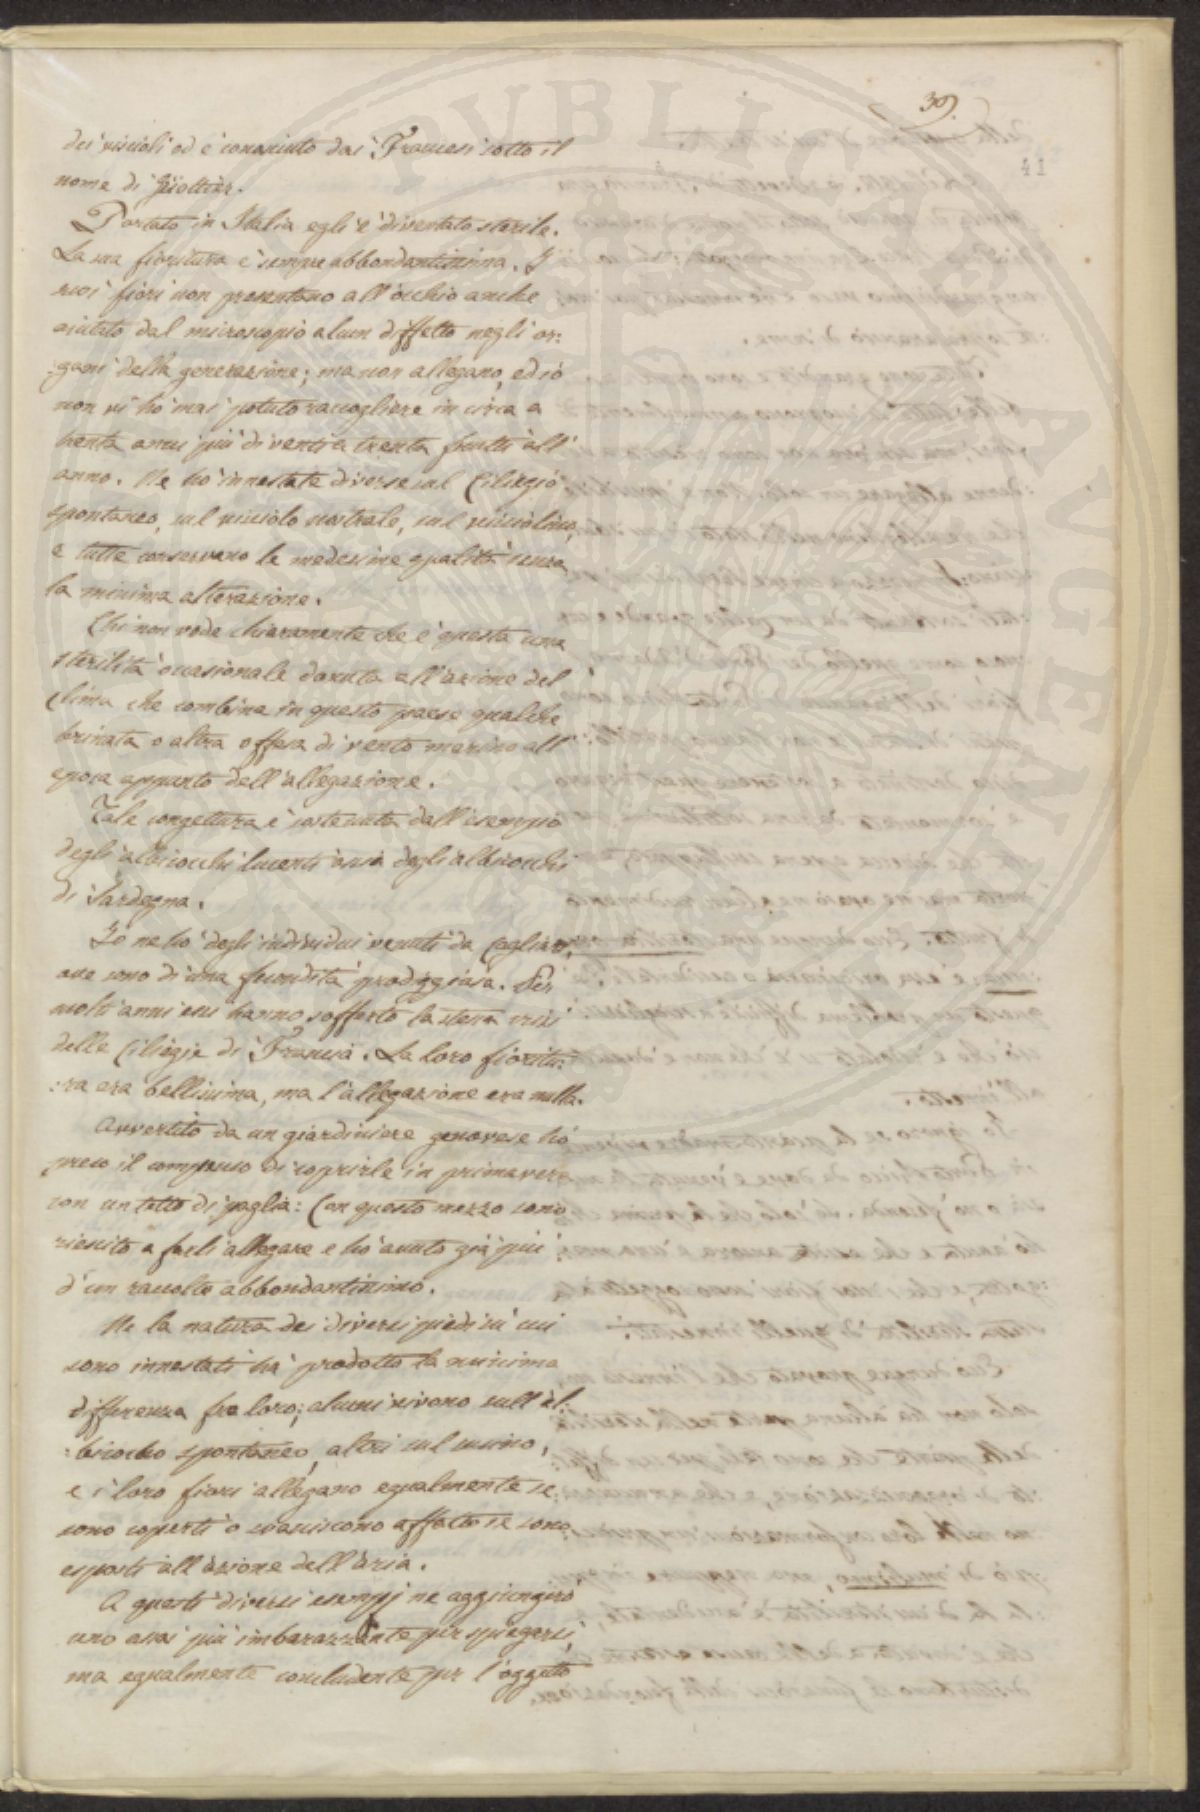 39.
41
dei viscioli ed è conosciuto dai Francesi sotto il
nome di
Portato in Italia egli è diventato sterile.
La sua fioritura è sempre abbondantissima. I
suoi fiori non presentano all'occhio anche
aiutato dal microscopio alcun diffetto negli or:
:gani della generazione; ma non allegano, ed io
non vi hò mai potuto raccogliere in circa a
trenta anni più di venti a trenta frutti all'
anno. Ne hò innestate diverse sul Ciliegio
spontaneo, sul visciolo nostrale, sul visciolino,
e tutte conservano le medesime qualità senza
la minima alterazione.
Chi non vede chiaramente che è questa una
sterilità occasionale dovuta all'azione del
Clima che combina in questo paese qualche
brinata o altra offesa di vento marino all'
epoca appunto dell'allegazione.
Tale congettura è sostenuta dall'esempio
degli albicocchi lucenti ossia degli albicocchi
di Sardegna.
Io ne hò degli individui venuti da Cagliari,
ove sono di una fecondità prodiggiosa. Per
molti anni essi hanno sofferto la stessa crisi
delle Ciliegie di Francia. La loro fioritu:
:ra era bellissima, ma l'allegazione era nulla.
Avvertito da un giardiniere genovese hò
preso il compenso di coprirle in primavera
con un tetto di paglia: Con questo mezzo sono
riescito a farli allegare e hò avuto già più
d'un raccolto abbondantissimo.
Ne la natura dei diversi piedi su cui
sono innestati hà prodotto la minima
differenza fra loro; alcuni vivono sull'al:
:bicocco spontaneo, altri sul susino,
e i loro fiori allegano egualmente se
sono coperti o svaniscono affatto se sono
esposti all'azione dell'aria.
A questi diversi esempj ne aggiungerò
uno assai più imbarazzante per spiegarsi,
ma egualmente concludente per l'oggetto
PUBLICAE AUGENTI